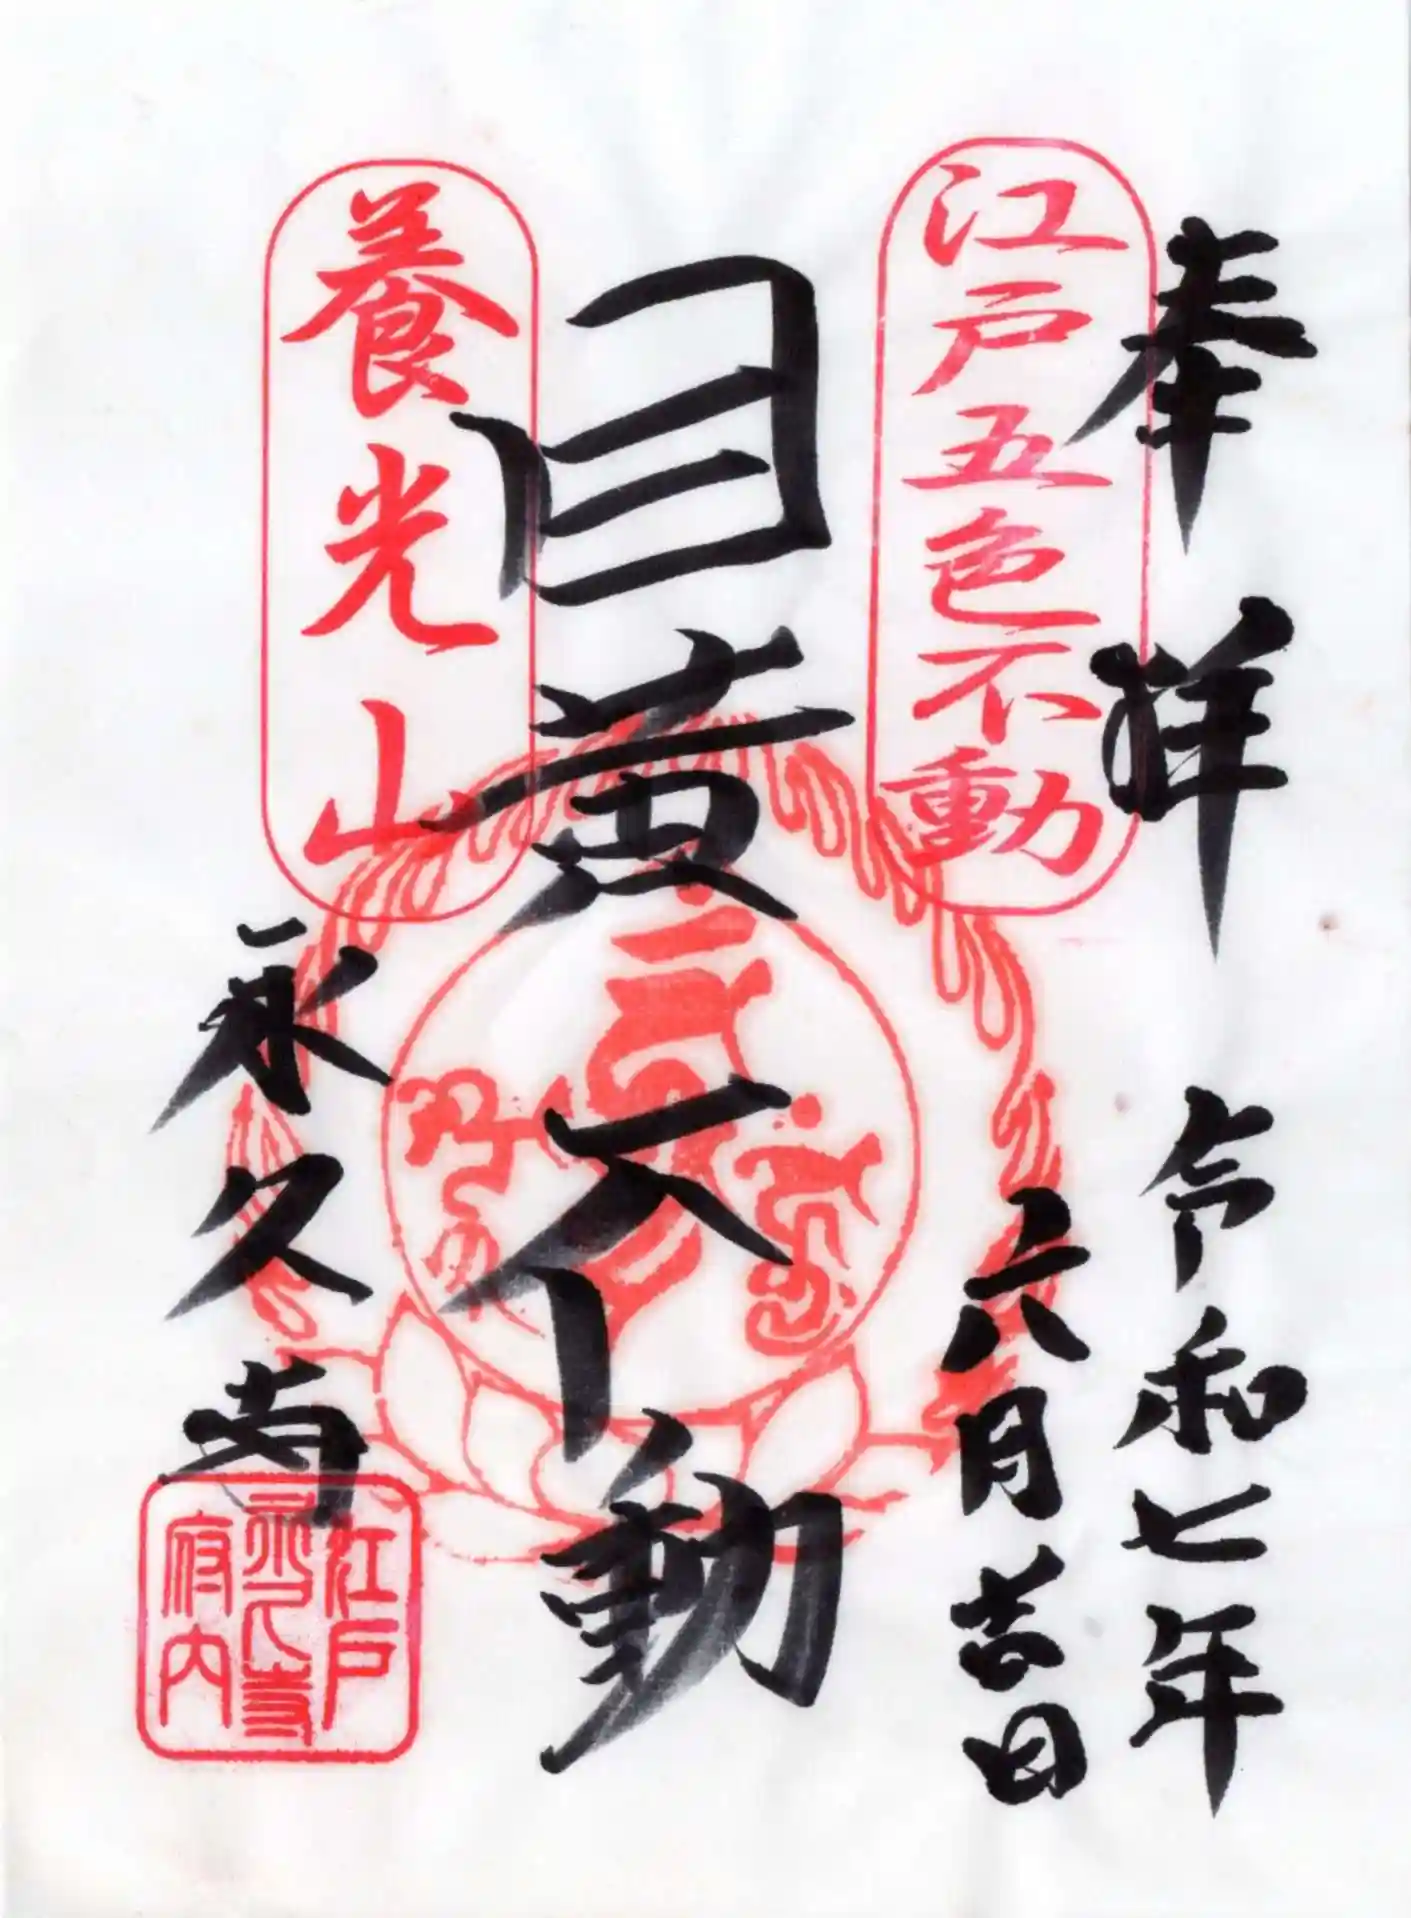 奉拝
令和七年
六月吉日
江戸五色不動
目黄不動
養光山
永久寺
江戸
永久寺
府内